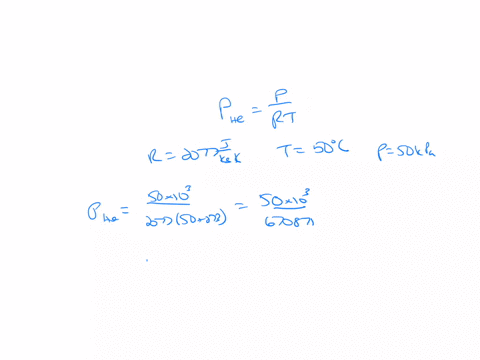 ρ_He = P / RT
R = 2077 J/kg K    T = 50°C    P = 50 kPa
ρ_He = 50×10³ / 2077(50+273) = 50×10³ / 670871